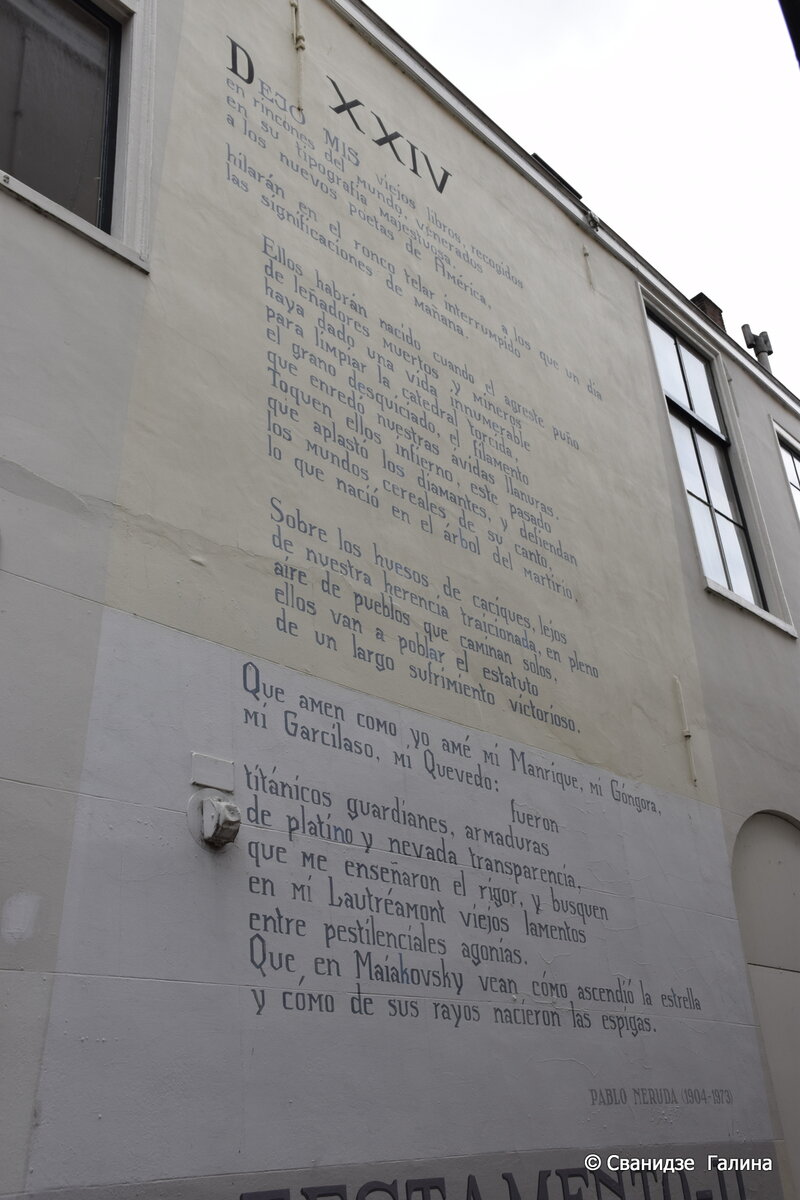 XXIV
DEJO MIS viejos libros, recogidos
en rincones del mundo, venerados
en su tipografía majestuosa,
a los nuevos poetas de América,
a los que un día
hilarán en el ronco telar interrumpido
las significaciones de mañana.
Ellos habrán nacido cuando el agreste puño
de leñadores muertos y mineros
haya dado una vida innumerable
para limpiar la catedral torcida,
el grano desquiciado, el filamento
que enredó nuestras ávidas llanuras.
Toquen ellos infierno, este pasado
que aplastó los diamantes, y defiendan
los mundos cereales de su canto,
lo que nació en el árbol del martirio.
Sobre los huesos de caciques, lejos
de nuestra herencia traicionada, en pleno
aire de pueblos que caminan solos,
ellos van a poblar el estatuto
de un largo sufrimiento victorioso.
Que amen como yo amé mi Manrique, mi Góngora,
mi Garcilaso, mi Quevedo:
fueron
titánicos guardianes, armaduras
de platino y nevada transparencia,
que me enseñaron el rigor, y busquen
en mi Lautréamont viejos lamentos
entre pestilenciales agonías.
Que en Maiakovsky vean cómo ascendió la estrella
y cómo de sus rayos nacieron las espigas.
PABLO NERUDA (1904-1973)
TESTAMENTO II
© Сванидзе Галина